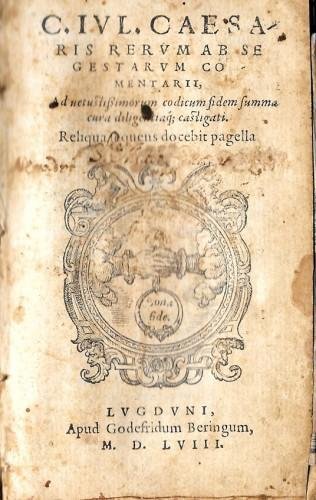 C. IVL. CAESA-
RIS RERVM AB SE
GESTARVM CO
MENTARII,
Ad uetustissimorum codicum fidem summa
cura diligentiaq; castigati.
Reliqua sequens docebit pagella
Bona
fide.
LVGDVNI,
Apud Godefridum Beringum,
M. D. LVIII.